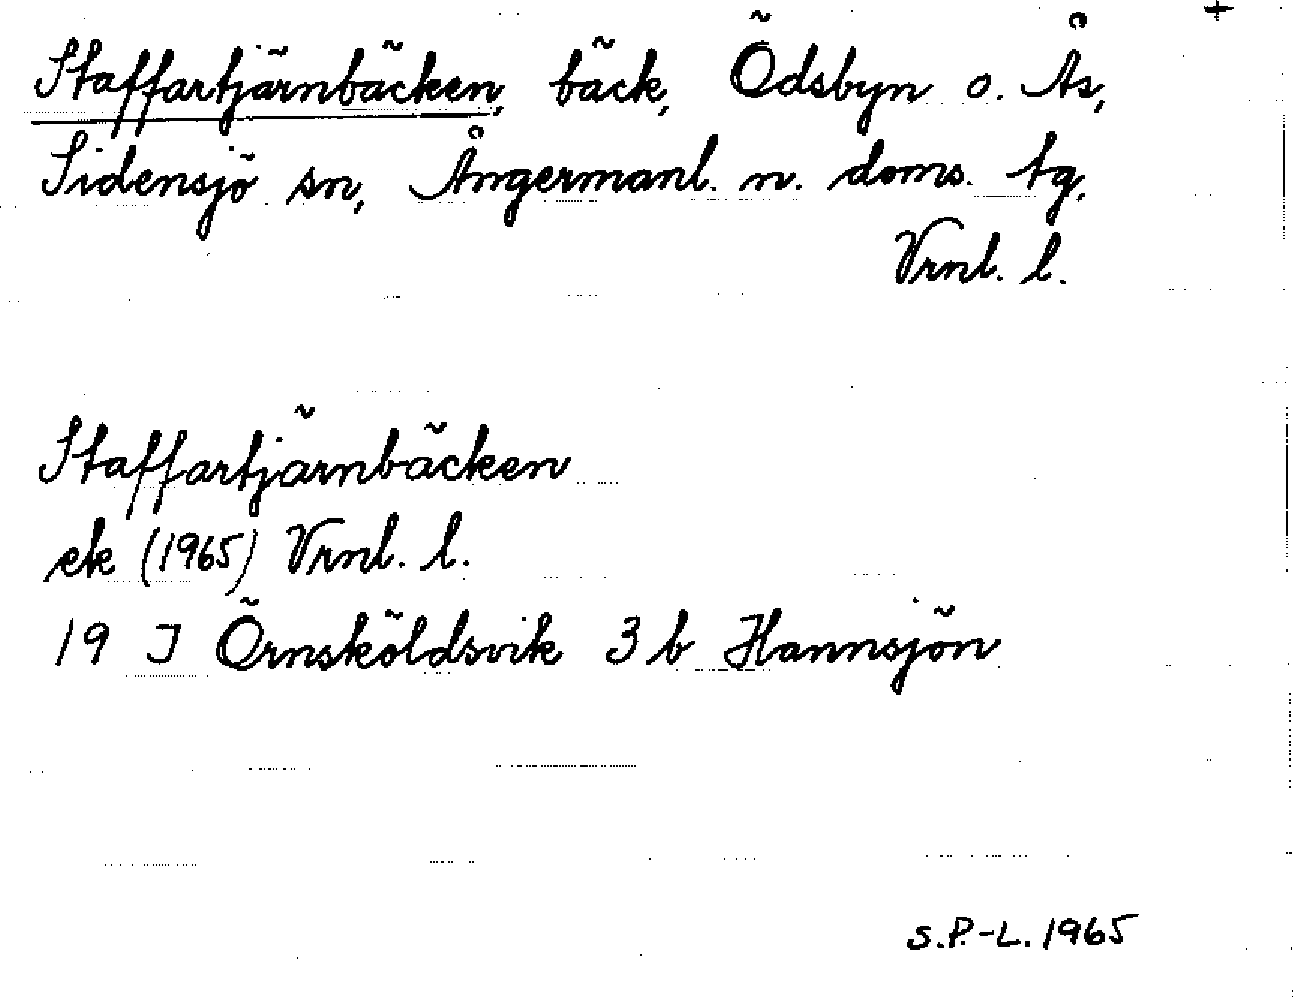 +
Staffartjärnbäcken, bäck, Ödsbyn o. Ås,
Sidensjö sn, Ångermanl. n. doms. tg,
Vrnl. l.
Staffartjärnbäcken
ek (1965) Vrnl. l.
19 J Örnsköldsvik 3 b Hannsjön
S.P.-L. 1965